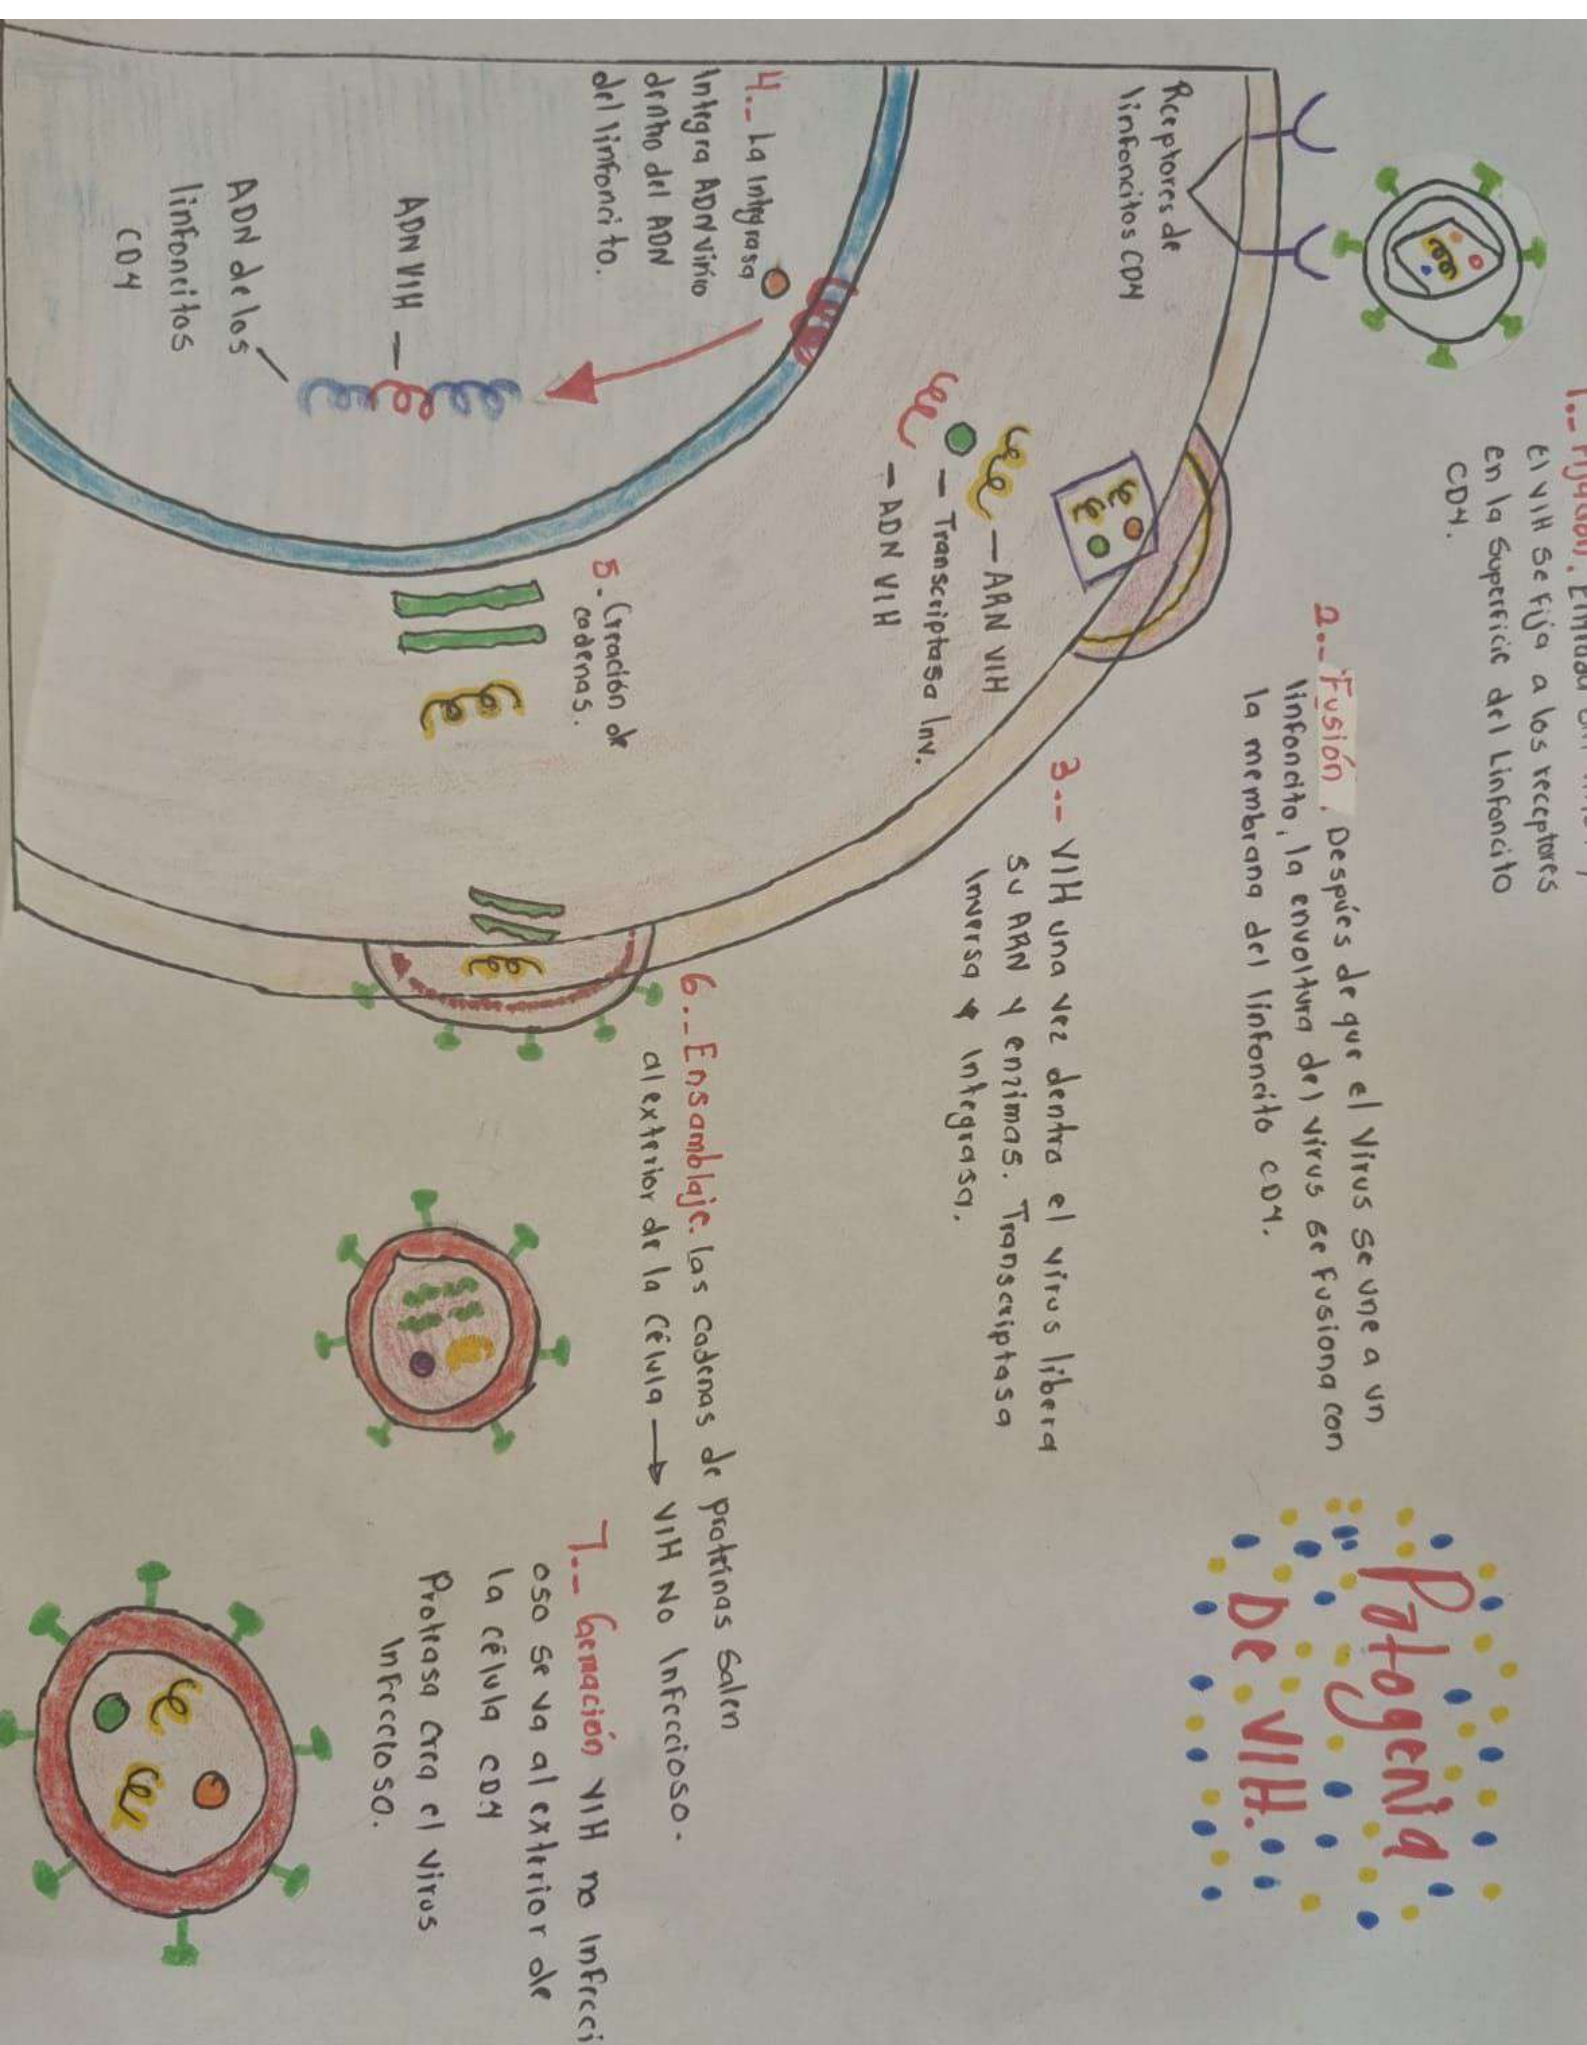 Patogenia
De VIH.
1.- Fijación.
El VIH se fija a los receptores
en la superficie del Linfoncito
CD4.
2.- Fusión. Después de que el virus se une a un
linfoncito, la envoltura del virus se fusiona con
la membrana del linfoncito CD4.
Receptores de
linfoncitos CD4
3.- VIH una vez dentro el virus libera
su ARN y enzimas. Transcriptasa
Inversa y Integrasa.
ARN VIH
Transcriptasa Inv.
ADN VIH
4.- La Integrasa
Integra ADN vírico
dentro del ADN
del linfoncito.
ADN VIH
ADN de los
linfoncitos
CD4
5.- Creación de
cadenas.
6.- Ensamblaje. las cadenas de proteínas salen
al exterior de la célula → VIH No Infeccioso.
7.- Gemación VIH no infecci
oso se va al exterior de
la célula CD4
Proteasa crea el virus
Infeccioso.